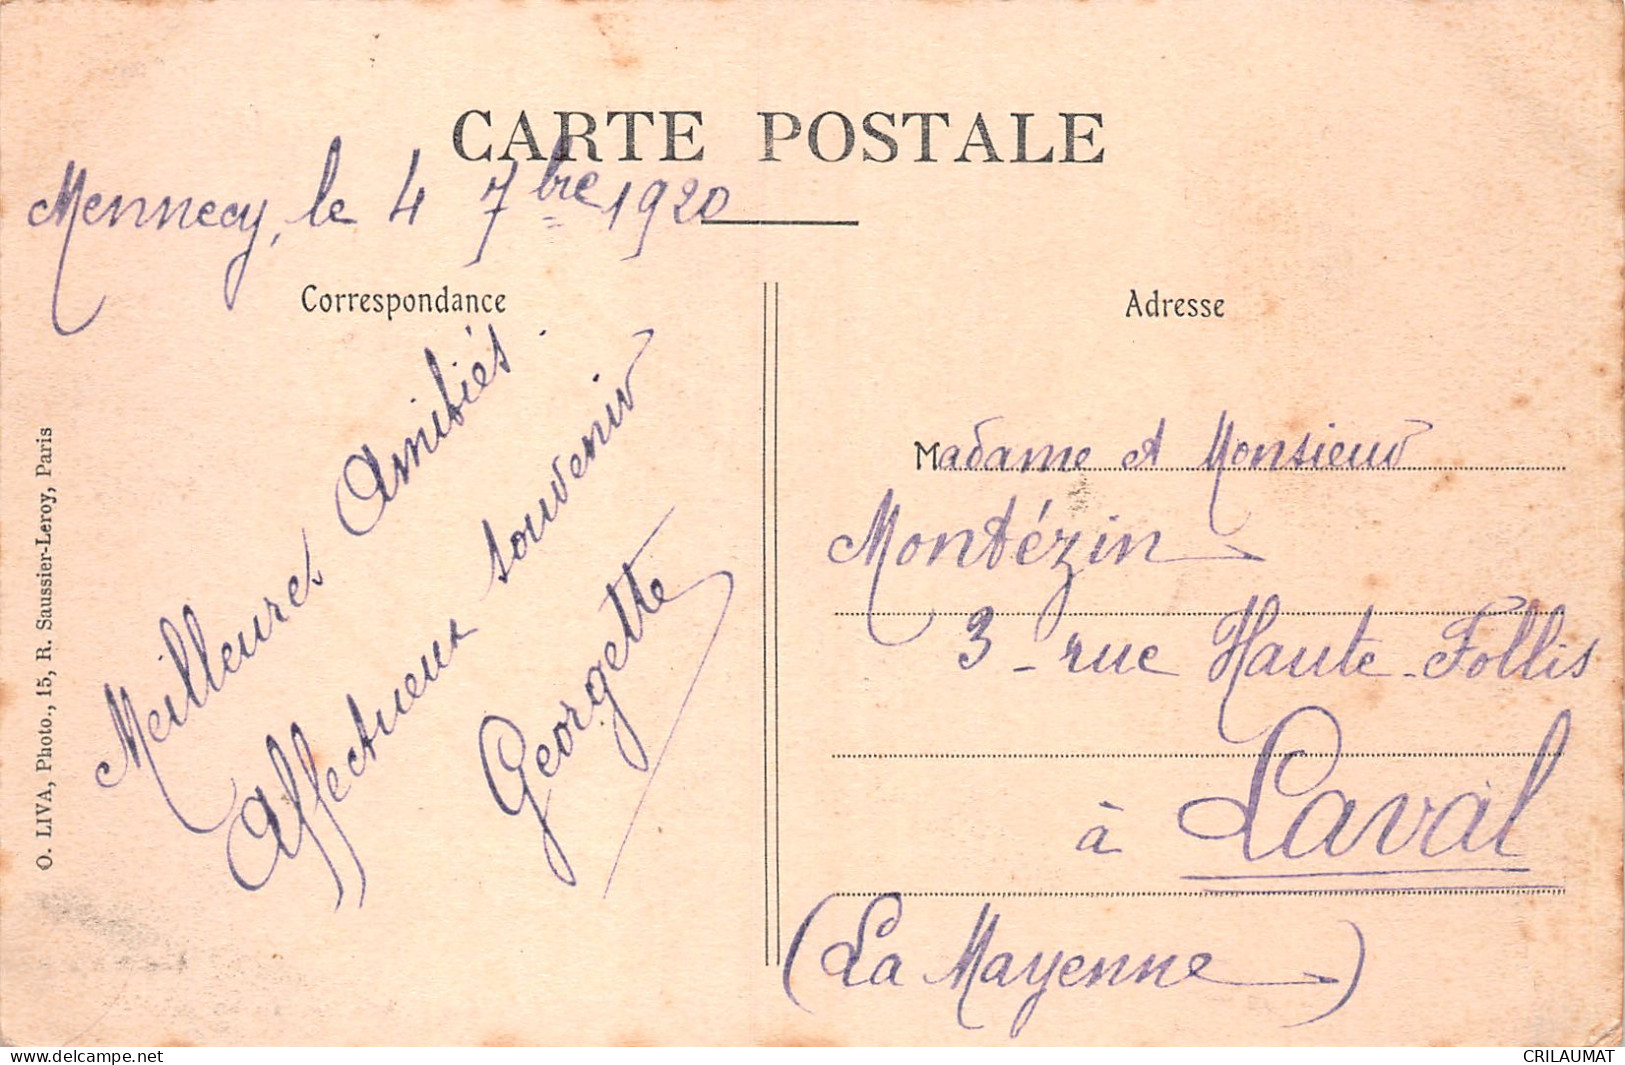 CARTE POSTALE
Mennecy, le 4 7bre 1920
Correspondance
Meilleures Amitiés.
Affectueux souvenir
Georgette
O. LIVA, Photo., 15, R. Saussier-Leroy, Paris
Adresse
Madame et Monsieur
Montézin
3 - rue Haute-Follis
à Laval
(La Mayenne)
www.delcampe.net
CRILAUMAT